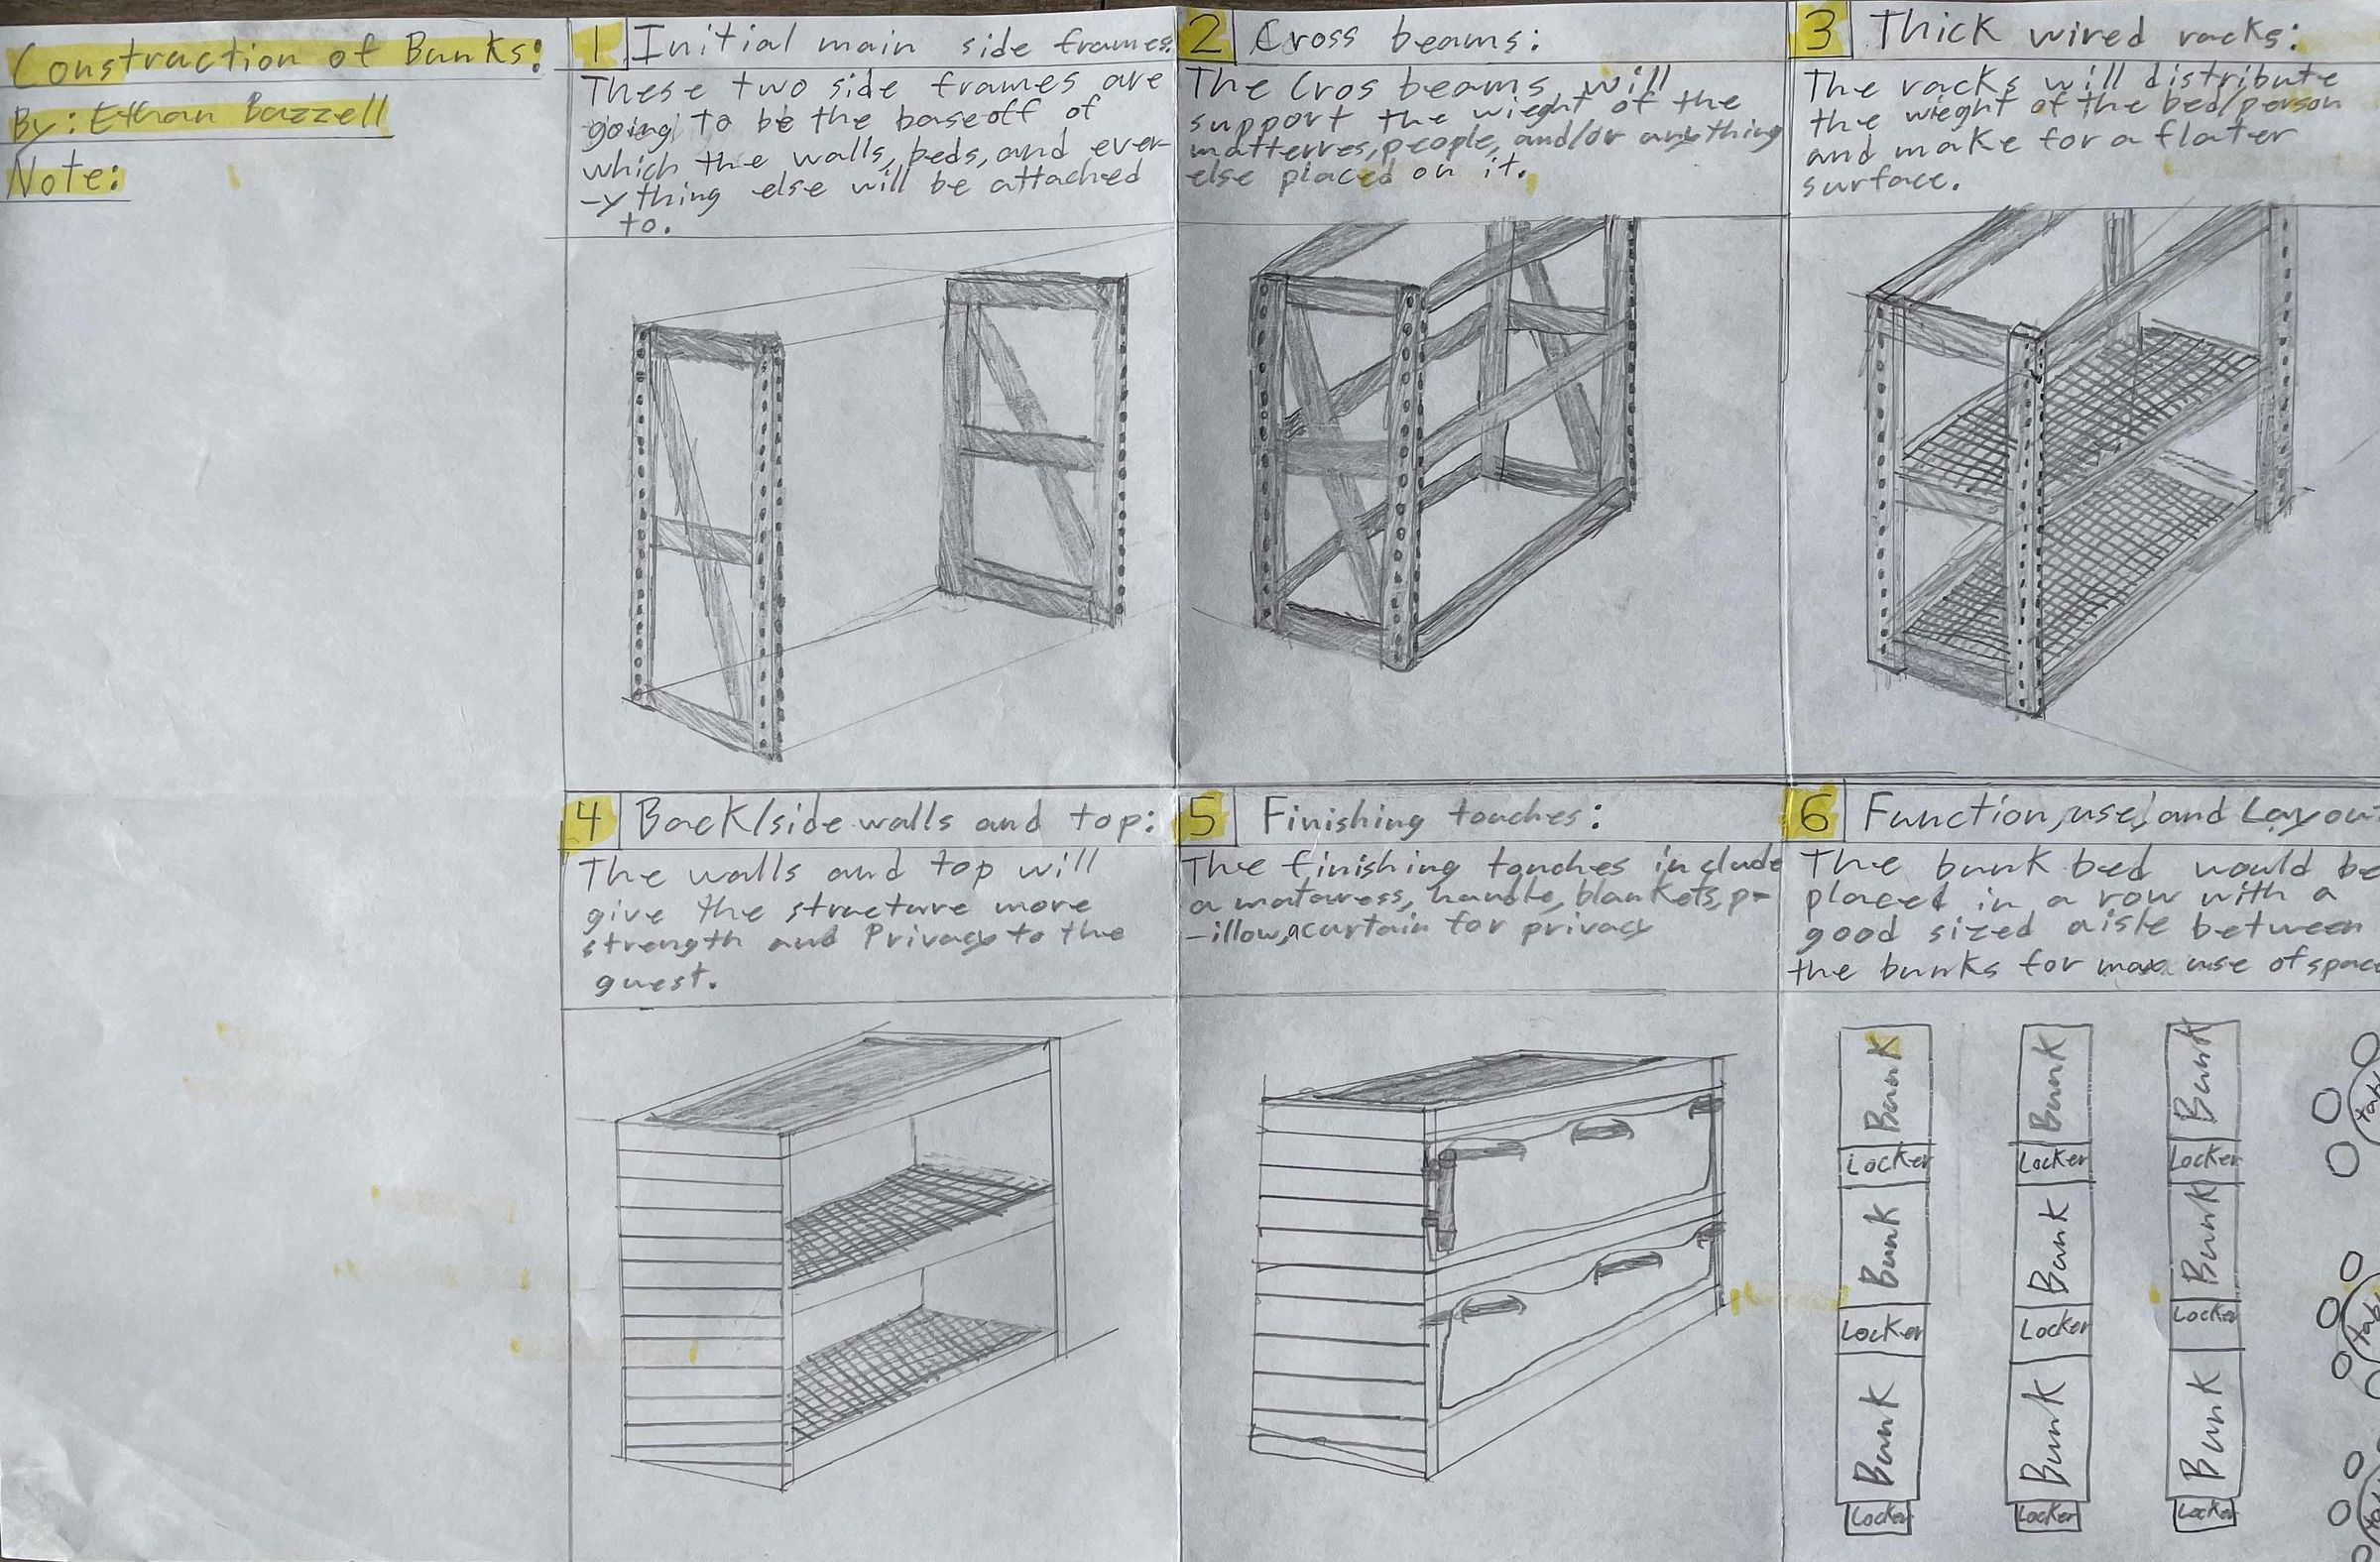 Construction of Bunks:
By: Ethan Bazzell
Note:
1 Initial main side frames:
These two side frames are
going to be the base off of
which the walls, beds, and ever-
-ything else will be attached
to.
2 Cross beams:
The Cros beams will
support the wieght of the
matterres, people, and/or anything
else placed on it.
3 Thick wired racks:
The racks will distribute
the wieght of the bed/person
and make for a flater
surface.
4 Back/side walls and top:
The walls and top will
give the structure more
strength and Privacy to the
guest.
5 Finishing touches:
The finishing touches include
a mataress, handle, blankets, p-
-illow, a curtain for privacy
6 Function, use, and Layou
The bunk bed would be
placed in a row with a
good sized aisle between
the bunks for max use of space
Bunk Bunk Bunk
Locker Locker Locker
Bunk Bunk Bunk
Locker Locker Locker
Bunk Bunk Bunk
Locker Locker Locker